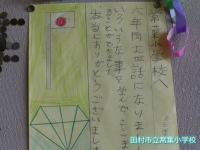 常葉小学校へ
六年間お世話になりました
いろいろな事を学んで
きることができました。
本当にありがとうございました
田村市立常葉小学校